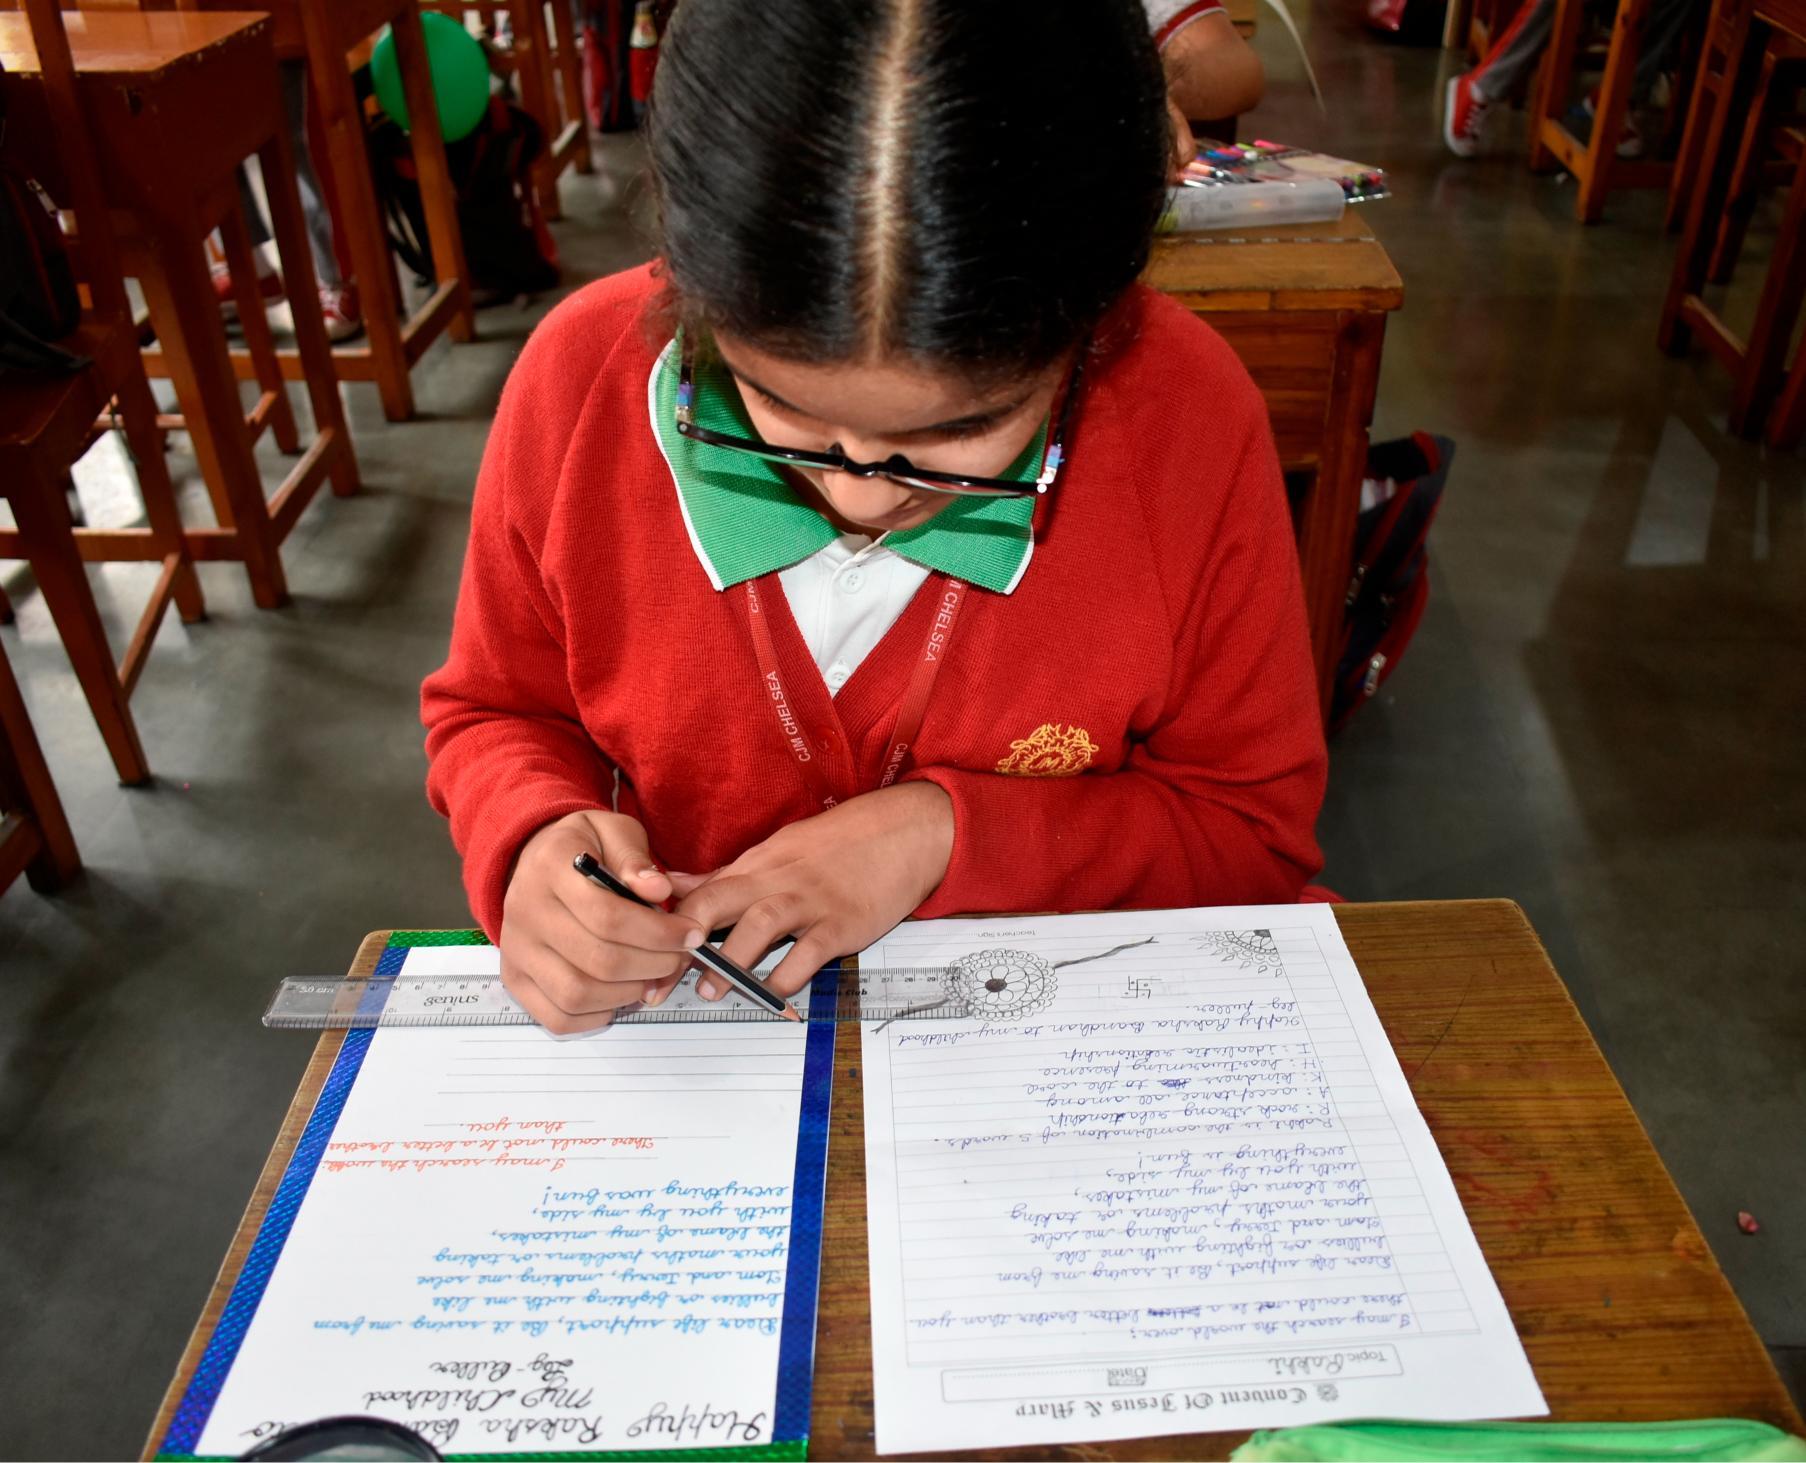 Happy Raksha
My Childhood
Leg-Puller
Dear life support, Be it saving me from
bullies or fighting with me like
Tom and Jerry, making me solve
your maths problems or taking
the blame of my mistakes,
with you by my side,
everything was fun!
I may search the
There could not be a better brother
than you.
Convent Of Jesus & Mary
Topic Rakhi
Date
I may search the world over;
there could not be a better brother than you.
Dear life support, Be it saving me from
bullies or fighting with me like
Tom and Jerry, making me solve
your maths problems or taking
the blame of my mistakes,
with you by my side,
everything is fun!
Rakhi is the combination of 5 words.
R: rock strong relationship
A: acceptance all among
K: kindness to the core
H: heartwarming presence
I: idealistic relationship
Happy Raksha Bandhan to my childhood
leg puller.
Teachers Sign
CJM CHELSEA
CJM CHELSEA
M CHELSEA
JM
30 cm
Media Club